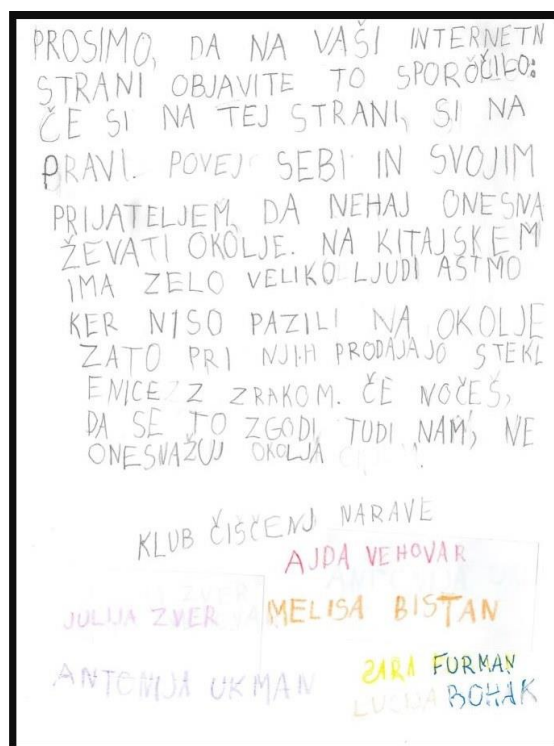 PROSIMO, DA NA VAŠI INTERNETN
STRANI OBJAVITE TO SPOROČILO:
ČE SI NA TEJ STRANI, SI NA
PRAVI. POVEJ SEBI IN SVOJIM
PRIJATELJEM, DA NEHAJ ONESNA
ŽEVATI OKOLJE. NA KITAJSKEM
IMA ZELO VELIKO LJUDI ASTMO
KER NISO PAZILI NA OKOLJE
ZATO PRI NJIH PRODAJAJO STEKL
ENICE Z ZRAKOM. ČE NOČEŠ,
DA SE TO ZGODI TUDI NAM, NE
ONESNAŽUJ OKOLJA
KLUB ČIŠČENJ NARAVE
AJDA VEHOVAR
JULIJA ZVER MELISA BISTAN
ANTONIJA UKMAN ZARA FURMAN
LUCIJA BOHAK